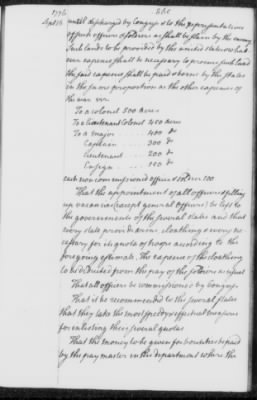 1776
380
Sept 16
until discharged by Congress & to the representatives
of such officers & soldiers as shall be slain by the enemy
Such lands to be provided by the united states & what
ever expence shall be necessary to procure such land
the said expence shall be paid & borne by the states
in the same proportion as the other expences of
the war viz
To a colonel 500 acres
To a lieutenant Colonel 450 acres
To a major 400 do
Captain 300 do
lieutenant 200 do
Ensign 150 do
each non commissioned officer & soldier 100
That the appointment of all officers & filling
up vacancies (except general officers) be left to
the governments of the several states and that
every state provide arms cloathing & every ne
cessary for its quota of troops according to the
foregoing estimate. The expence of the cloathing
to be deducted from the pay of the soldiers as usual
That all officers be commissioned by Congress
That it be recommended to the several states
that they take the most speedy & effectual measures
for inlisting their several quotas
That the money to be given for bounties be paid
by the pay master in the department where the